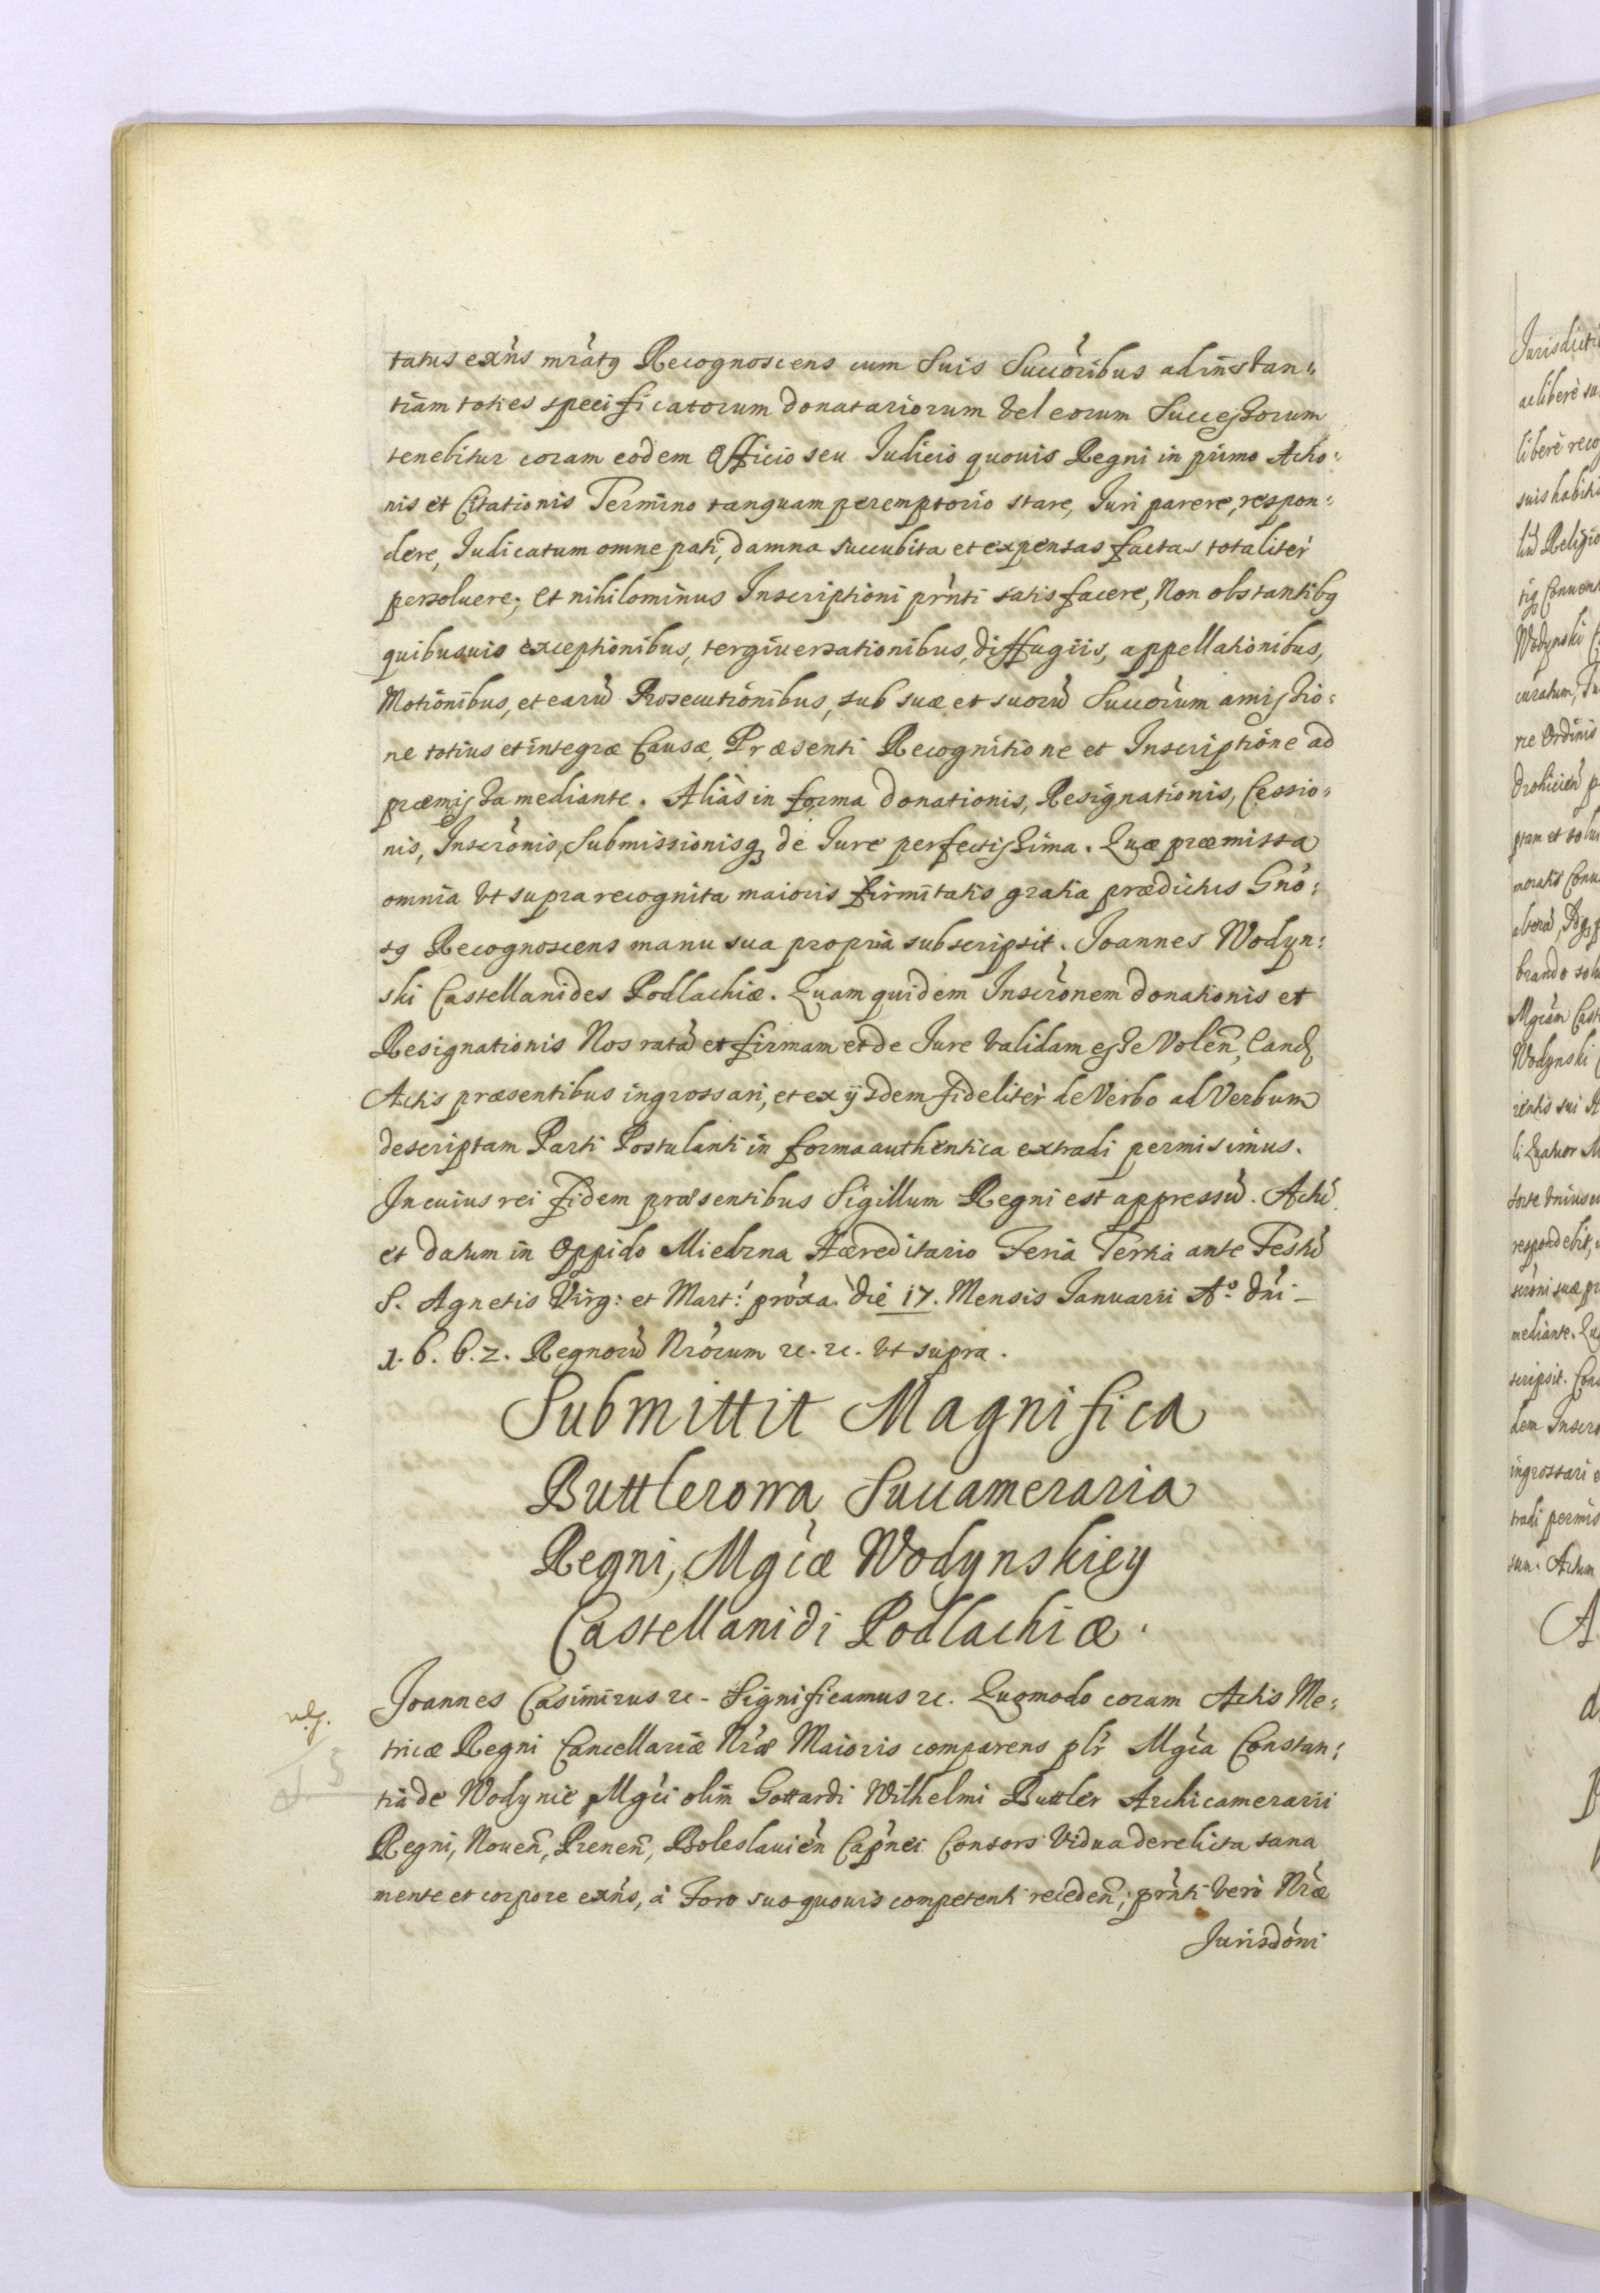 tatus exńs mŕatq Recognoscens cum Suis Succóribus ad instan:
tiam toties specificatorum donatariorum vel eorum Successorum
tenebitur coram eodem Officio seu Iudicio quouis Regni in primo Actio:
nis et Citationis Termino tanquam peremptorio stare, Iuri parere, respon:
dere, Iudicatum omne pati, damna succubita et expensas factas totaliter
persoluere; et nihilominus Inscriptioni prńti satisfacere, Non obstantibq
quibusuis exceptionibus, tergiuersationibus, diffugiis, appellationibus,
Motionibus, et earũ Prosecutionibus, sub suæ et suorũ Succórum amissio:
ne totius et integræ Causæ, Præsenti Recognitione et Inscriptione ad
præmissa mediante. Aliàs in forma donationis, Resignationis, Cessio:
nis, Inscrónis, Submissionisq de Iure perfectissima. Quæ præmissa
omnia vt supra recognita maioris firmitatis gratia prædictus Gnó:
sq Recognoscens manu sua propria subscripsit. Joannes Wodyn:
ski Castellanides Podlachiæ. Quam quidem Inscrónem donationis et
Resignationis Nos ratã et firmam et de Iure validam esse Voleñ, eand
Actis præsentibus ingrossari, et ex ijsdem fideliter de Verbo ad Verbum
descriptam Parti Postulanti in forma authentica extradi permisimus.
In cuius rei fidem præsentibus Sigillum Regni est appressũ. Actũ
et datum in Oppido Miedzna Hæreditario Feria Tertia ante Festũ
S. Agnetis Virg: et Mart: próxa. die 17. Mensis Ianuarii Aº. dńi –
1. 6. 6. 2. Regnorũ Nrórum rc. rc. vt supra.
Submittit Magnifica
Buttlerowa Succameraria
Regni, Mgćæ Wodynskiey
Castellanidi Podlachiæ.
Joannes Casimirus rc - Significamus rc. Quomodo coram Actis Me:
tricæ Regni Cancellariæ Nŕæ Maioris comparens plŕ Mgća Constan:
tia de Wodynie Mgći olim Gottardi Wilhelmi Buttler Archicamerarii
Regni, Noueñ, Preneñ, Boleslauień Capńei Consors Vidua derelicta sana
mente et corpore exńs, à Foro suo quouis competenti recedeñ; prńti verò Nŕæ
Jurisdóni